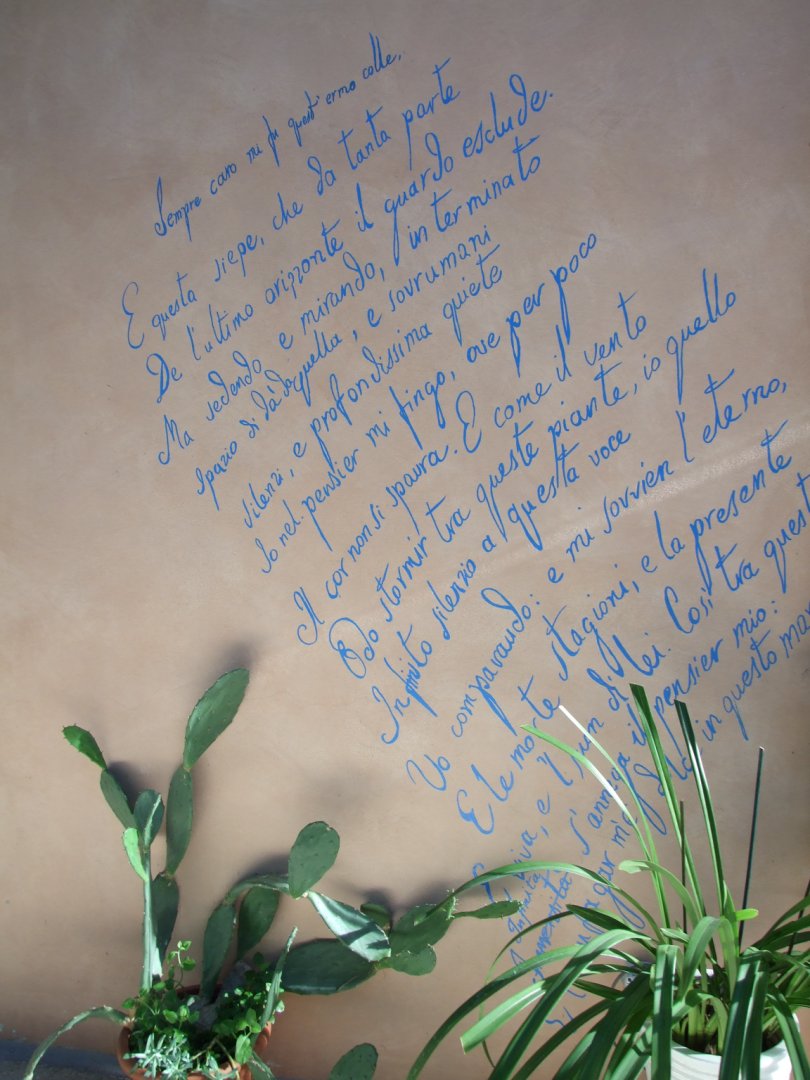 Sempre caro mi fu quest'ermo colle,
E questa siepe, che da tanta parte
De l'ultimo orizzonte il guardo esclude.
Ma sedendo e mirando, interminato
spazio di là da quella, e sovrumani
silenzi, e profondissima quiete
Io nel pensier mi fingo, ove per poco
Il cor non si spaura. E come il vento
Odo stormir tra queste piante, io quello
Infinito silenzio a questa voce
Vo comparando: e mi sovvien l'eterno,
E le morte stagioni, e la presente
viva, e il suon di lei. Così tra quest
Infinità s'annega il pensier mio:
in questo mar